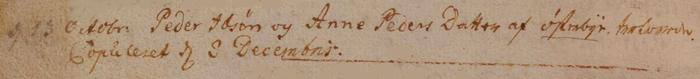 d 13 Octobr. Peder Ibsøn og Anne Peders Datter af Østerbye. trolovede.
Copuleret d 2 Decembris.